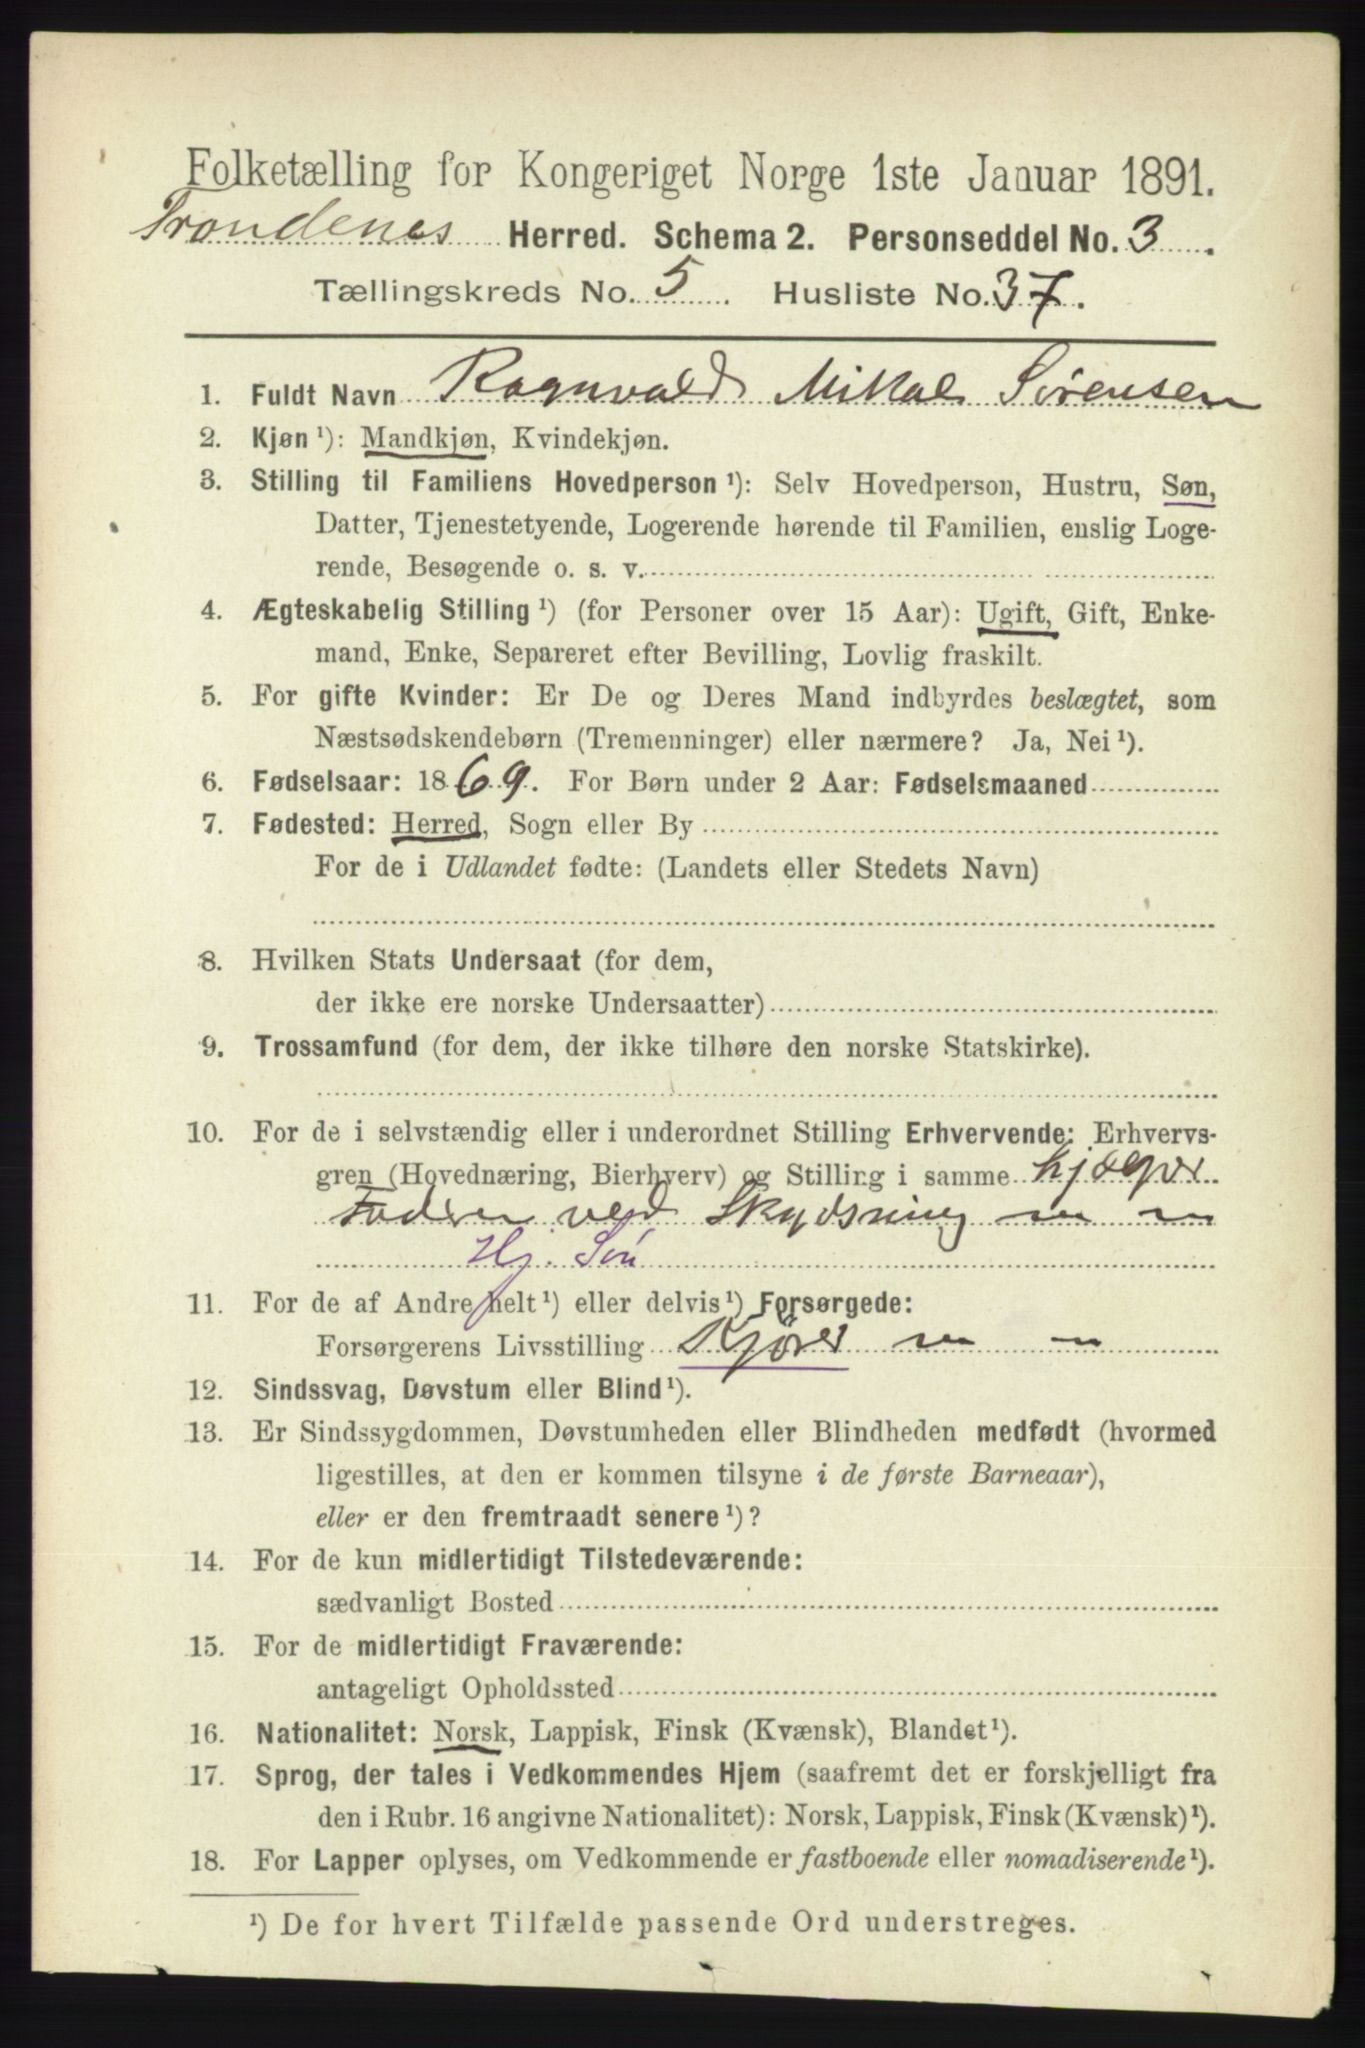 Folketælling for Kongeriget Norge 1ste Januar 1891.
Trondenes Herred. Schema 2. Personseddel No. 3.
Tællingskreds No. 5. Husliste No. 37.
1. Fuldt Navn Ragnvald Mikal Sørensen
2. Kjøn ¹): Mandkjøn, Kvindekjøn.
3. Stilling til Familiens Hovedperson ¹): Selv Hovedperson, Hustru, Søn,
Datter, Tjenestetyende, Logerende hørende til Familien, enslig Loge-
rende, Besøgende o. s. v.
4. Ægteskabelig Stilling ¹) (for Personer over 15 Aar): Ugift, Gift, Enke-
mand, Enke, Separeret efter Bevilling, Lovlig fraskilt.
5. For gifte Kvinder: Er De og Deres Mand indbyrdes beslægtet, som
Næstsødskendebørn (Tremenninger) eller nærmere? Ja, Nei ¹).
6. Fødselsaar: 1869. For Børn under 2 Aar: Fødselsmaaned
7. Fødested: Herred, Sogn eller By
For de i Udlandet fødte: (Landets eller Stedets Navn)
8. Hvilken Stats Undersaat (for dem,
der ikke ere norske Undersaatter)
9. Trossamfund (for dem, der ikke tilhøre den norske Statskirke).
10. For de i selvstændig eller i underordnet Stilling Erhvervende: Erhvervs-
gren (Hovednæring, Bierhverv) og Stilling i samme hjælper
Faderen ved Skydsning
Hj. Søn
11. For de af Andre helt ¹) eller delvis ¹) Forsørgede:
Forsørgerens Livsstilling
12. Sindssvag, Døvstum eller Blind ¹).
13. Er Sindssygdommen, Døvstumheden eller Blindheden medfødt (hvormed
ligestilles, at den er kommen tilsyne i de første Barneaar),
eller er den fremtraadt senere ¹)?
14. For de kun midlertidigt Tilstedeværende:
sædvanligt Bosted
15. For de midlertidigt Fraværende:
antageligt Opholdssted
16. Nationalitet: Norsk, Lappisk, Finsk (Kvænsk), Blandet ¹).
17. Sprog, der tales i Vedkommendes Hjem (saafremt det er forskjelligt fra
den i Rubr. 16 angivne Nationalitet): Norsk, Lappisk, Finsk (Kvænsk) ¹).
18. For Lapper oplyses, om Vedkommende er fastboende eller nomadiserende ¹).
¹) De for hvert Tilfælde passende Ord understreges.